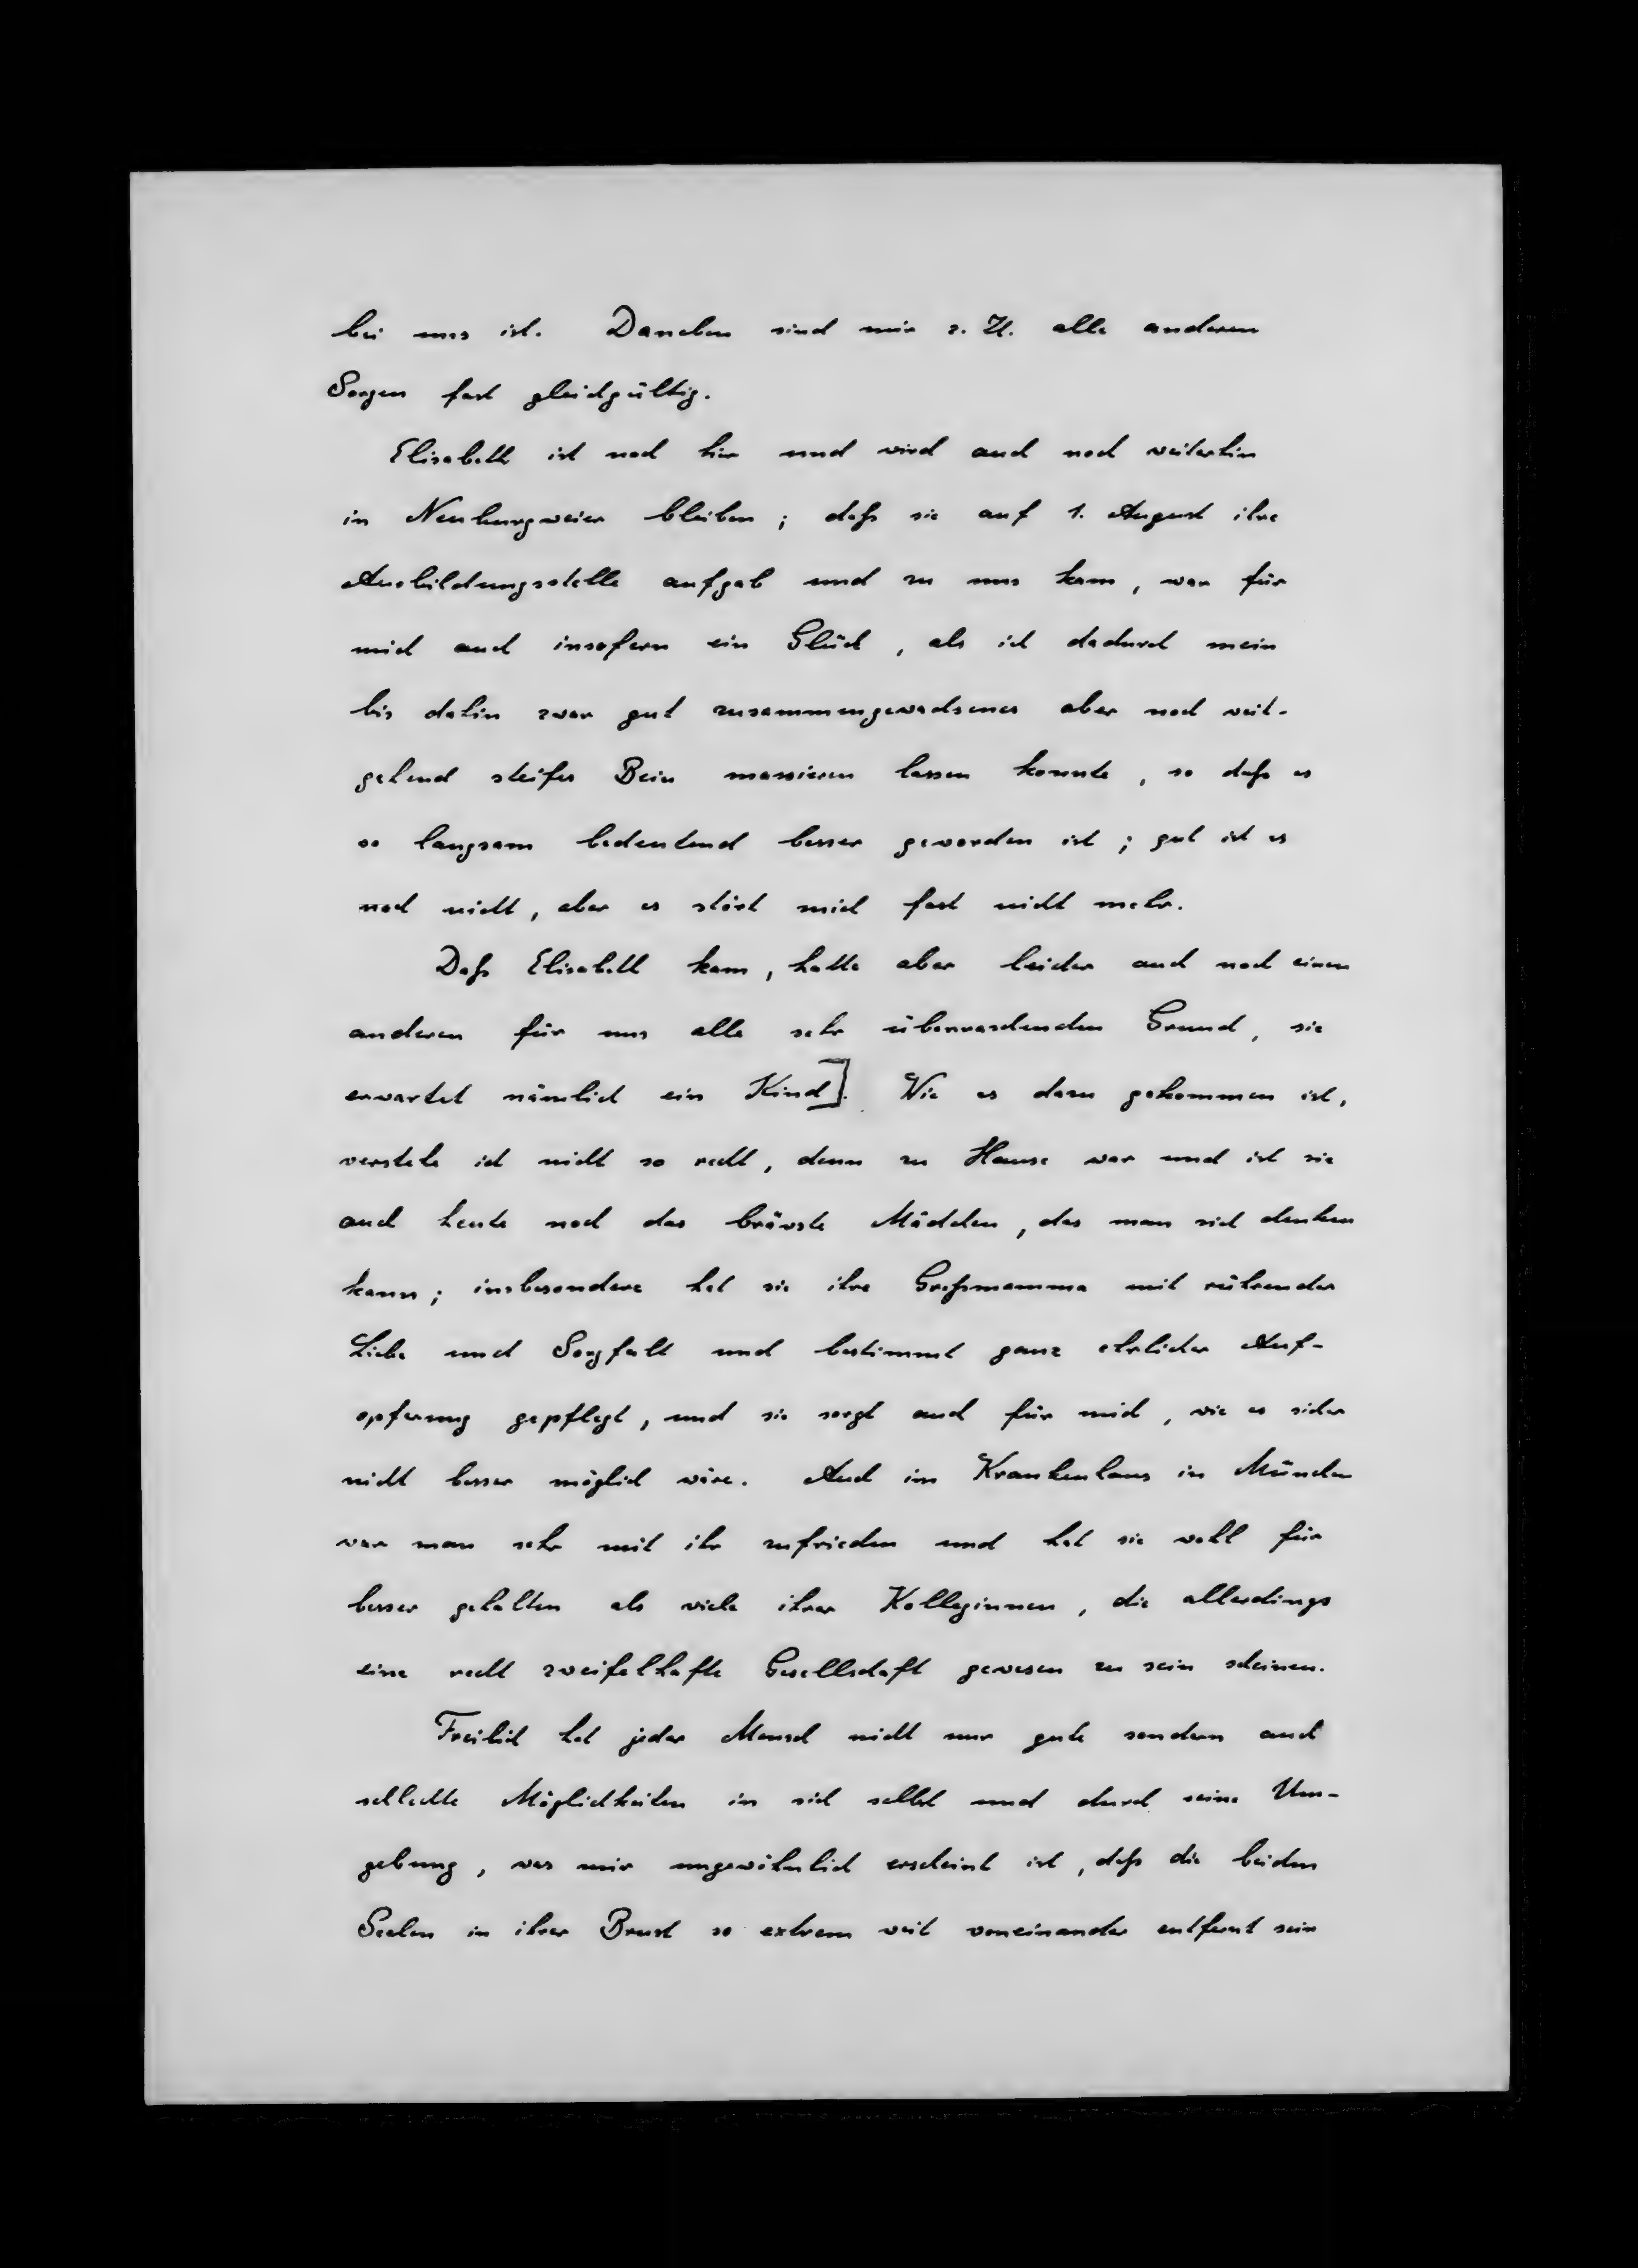 bei uns ist. Daneben sind mir z. Zt. alle anderen
Sorgen fast gleichgültig.
Elisabeth ist noch hier und wird auch noch weiterhin
in Neuburgweier bleiben; daß sie auf 1. August ihre
Ausbildungsstelle aufgab und zu uns kam, war für
mich auch insofern ein Glück, als ich dadurch mein
bis dahin zwar gut zusammengewachsenes aber noch weit-
gehend steifes Bein massieren lassen konnte, so daß es
so langsam bedeutend besser geworden ist; gut ist es
noch nicht, aber es stört mich fast nicht mehr.
Daß Elisabeth kam, hatte aber leider auch noch einen
anderen für uns alle sehr überraschenden Grund, sie
erwartet nämlich ein Kind]. Wie es dazu gekommen ist,
verstehe ich nicht so recht, denn zu Hause war und ist sie
auch heute noch das brävste Mädchen, das man sich denken
kann; insbesondere hat sie ihre Großmamma mit rührender
Liebe und Sorgfalt und bestimmt ganz ehrlicher Auf-
opferung gepflegt, und sie sorgt auch für mich, wie es sicher
nicht besser möglich wäre. Auch im Krankenhaus in München
war man sehr mit ihr zufrieden und hat sie wohl für
besser gehalten als viele ihrer Kolleginnen, die allerdings
eine recht zweifelhafte Gesellschaft gewesen zu sein scheinen.
Freilich hat jeder Mensch nicht nur gute sondern auch
schlechte Möglichkeiten in sich selbst und durch seine Um-
gebung, was mir ungewöhnlich erscheint ist, daß die beiden
Seelen in ihrer Brust so extrem weit voneinander entfernt sein